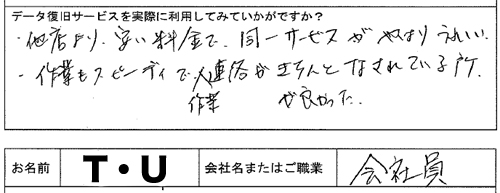 データ復旧サービスを実際に利用してみていかがですか?
・他店より、安い料金で、同一サービスがやはりうれしい。
・作業もスピーディで、連絡がきちんとなされている所
作業 が良かった。
お名前 T・U 会社名またはご職業 会社員